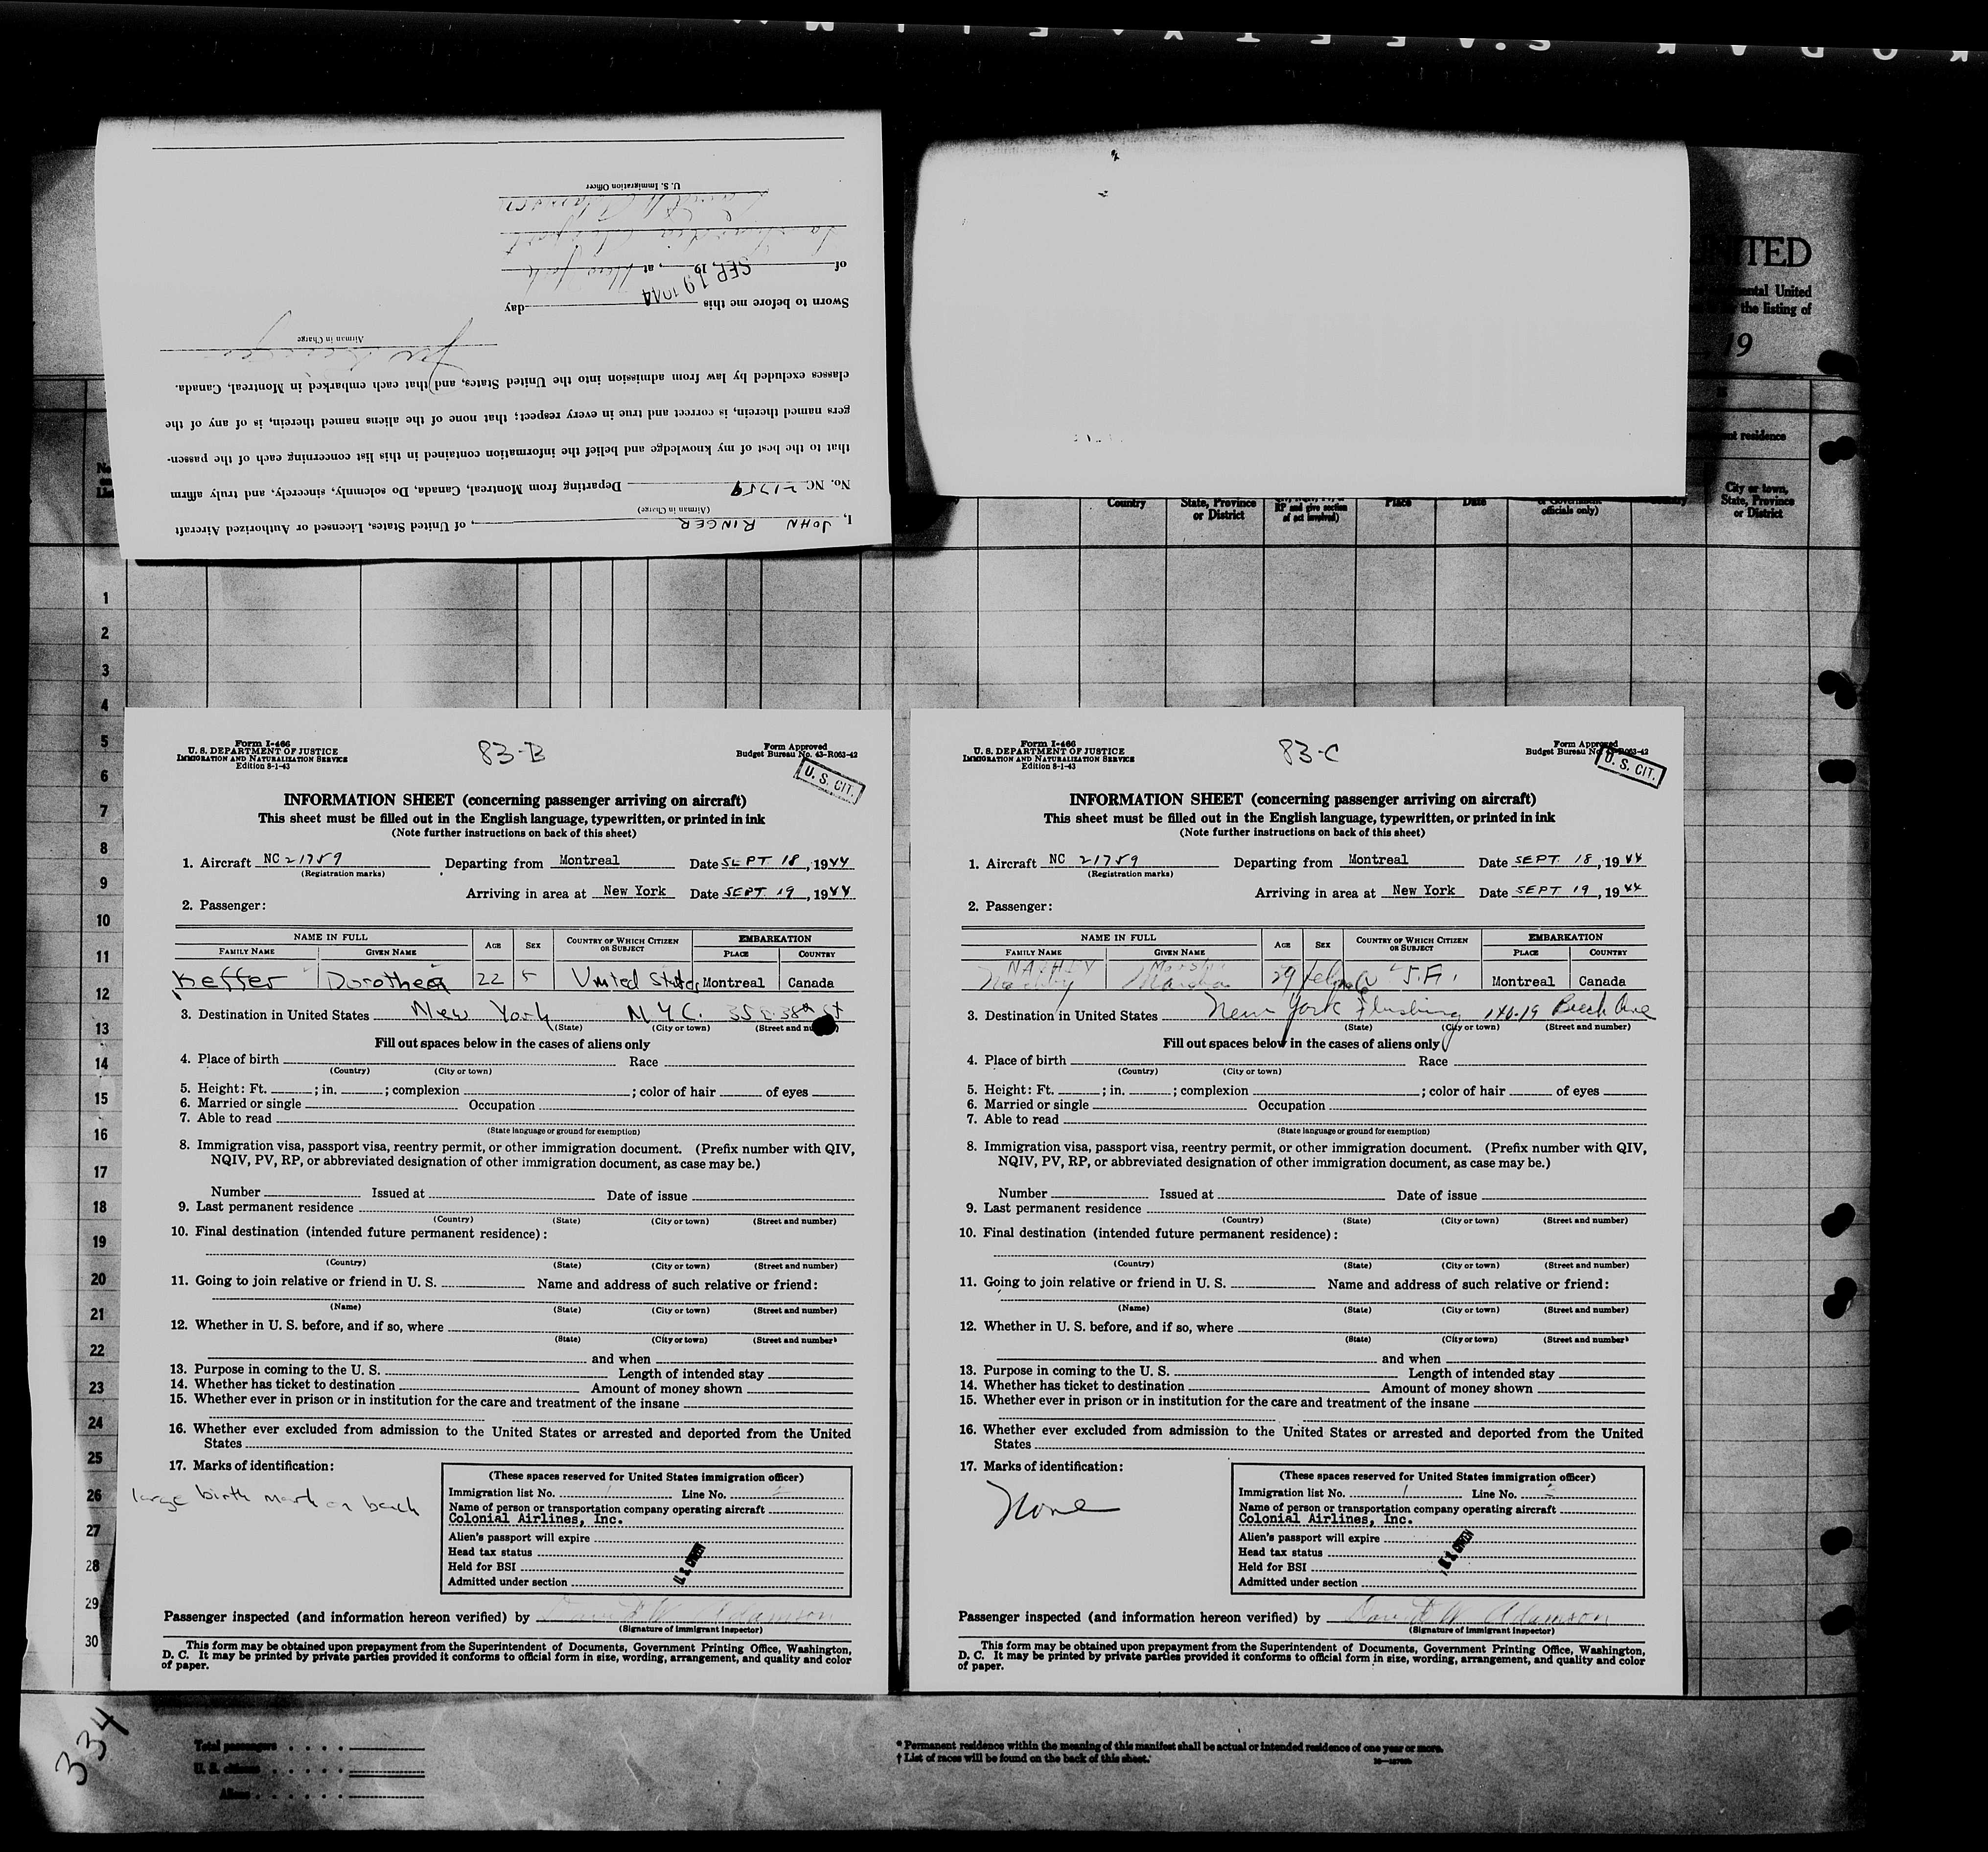 KODAK SAFETY FILM
I, JOHN RINGER, of United States, Licensed or Authorized Aircraft
(Airman in Charge)
No. NC 21759 Departing from Montreal, Canada, Do solemnly, sincerely, and truly affirm
that to the best of my knowledge and belief the information contained in this list concerning each of the passen-
gers named therein, is correct and true in every respect; that none of the aliens named therein, is of any of the
classes excluded by law from admission into the United States, and that each embarked in Montreal, Canada.
Airman in Charge
Sworn to before me this day
SEP 19 1944
of , 19 , at New York
U. S. Immigration Officer
UNITED
ental United
the listing of
19
nt residence
Country
State, Province
or District
RP and give section
of act involved)
Place
Date
officials only)
City or town,
State, Province
or District
1
2
3
4
5
6
7
8
9
10
11
12
13
14
15
16
17
18
19
20
21
22
23
24
25
26
27
28
29
30
Form I-466
U. S. DEPARTMENT OF JUSTICE
IMMIGRATION AND NATURALIZATION SERVICE
Edition 8-1-43
83-B
Form Approved
Budget Bureau No. 43-R063-42
U. S. CIT.
INFORMATION SHEET (concerning passenger arriving on aircraft)
This sheet must be filled out in the English language, typewritten, or printed in ink
(Note further instructions on back of this sheet)
1. Aircraft NC 21759 Departing from Montreal Date SEPT 18, 1944
(Registration marks)
Arriving in area at New York Date SEPT 19, 1944
2. Passenger:
NAME IN FULL AGE SEX COUNTRY OF WHICH CITIZEN OR SUBJECT EMBARKATION
FAMILY NAME GIVEN NAME PLACE COUNTRY
Keffer Dorothea 22 United States Montreal Canada
3. Destination in United States New York N.Y.C.
(State) (City or town) (Street and number)
Fill out spaces below in the cases of aliens only
4. Place of birth Race
(Country) (City or town)
5. Height: Ft. ; in. ; complexion ; color of hair of eyes
6. Married or single Occupation
7. Able to read
(State language or ground for exemption)
8. Immigration visa, passport visa, reentry permit, or other immigration document. (Prefix number with QIV,
NQIV, PV, RP, or abbreviated designation of other immigration document, as case may be.)
Number Issued at Date of issue
9. Last permanent residence
(Country) (State) (City or town) (Street and number)
10. Final destination (intended future permanent residence):
(Country) (State) (City or town) (Street and number)
11. Going to join relative or friend in U. S. Name and address of such relative or friend:
(Name) (State) (City or town) (Street and number)
12. Whether in U. S. before, and if so, where
(State) (City or town) (Street and number)
and when
13. Purpose in coming to the U. S. Length of intended stay
14. Whether has ticket to destination Amount of money shown
15. Whether ever in prison or in institution for the care and treatment of the insane
16. Whether ever excluded from admission to the United States or arrested and deported from the United
States
17. Marks of identification:
large birth mark on back
(These spaces reserved for United States immigration officer)
Immigration list No. 1 Line No. 2
Name of person or transportation company operating aircraft
Colonial Airlines, Inc.
Alien's passport will expire
Head tax status
Held for BSI
Admitted under section
U. S. CITIZEN
Passenger inspected (and information hereon verified) by David W Adamson
(Signature of immigrant inspector)
This form may be obtained upon prepayment from the Superintendent of Documents, Government Printing Office, Washington,
D. C. It may be printed by private parties provided it conforms to official form in size, wording, arrangement, and quality and color
of paper.
Form I-466
U. S. DEPARTMENT OF JUSTICE
IMMIGRATION AND NATURALIZATION SERVICE
Edition 8-1-43
83-C
Form Approved
Budget Bureau No. 43-R063-42
U. S. CIT.
INFORMATION SHEET (concerning passenger arriving on aircraft)
This sheet must be filled out in the English language, typewritten, or printed in ink
(Note further instructions on back of this sheet)
1. Aircraft NC 21759 Departing from Montreal Date SEPT 18, 1944
(Registration marks)
Arriving in area at New York Date SEPT 19, 1944
2. Passenger:
NAME IN FULL AGE SEX COUNTRY OF WHICH CITIZEN OR SUBJECT EMBARKATION
FAMILY NAME GIVEN NAME PLACE COUNTRY
29 Montreal Canada
3. Destination in United States New York Flushing 140-19 Beech Ave
(State) (City or town) (Street and number)
Fill out spaces below in the cases of aliens only
4. Place of birth Race
(Country) (City or town)
5. Height: Ft. ; in. ; complexion ; color of hair of eyes
6. Married or single Occupation
7. Able to read
(State language or ground for exemption)
8. Immigration visa, passport visa, reentry permit, or other immigration document. (Prefix number with QIV,
NQIV, PV, RP, or abbreviated designation of other immigration document, as case may be.)
Number Issued at Date of issue
9. Last permanent residence
(Country) (State) (City or town) (Street and number)
10. Final destination (intended future permanent residence):
(Country) (State) (City or town) (Street and number)
11. Going to join relative or friend in U. S. Name and address of such relative or friend:
(Name) (State) (City or town) (Street and number)
12. Whether in U. S. before, and if so, where
(State) (City or town) (Street and number)
and when
13. Purpose in coming to the U. S. Length of intended stay
14. Whether has ticket to destination Amount of money shown
15. Whether ever in prison or in institution for the care and treatment of the insane
16. Whether ever excluded from admission to the United States or arrested and deported from the United
States
17. Marks of identification:
None
(These spaces reserved for United States immigration officer)
Immigration list No. 1 Line No.
Name of person or transportation company operating aircraft
Colonial Airlines, Inc.
Alien's passport will expire
Head tax status
Held for BSI
Admitted under section
U. S. CITIZEN
Passenger inspected (and information hereon verified) by David W Adamson
(Signature of immigrant inspector)
This form may be obtained upon prepayment from the Superintendent of Documents, Government Printing Office, Washington,
D. C. It may be printed by private parties provided it conforms to official form in size, wording, arrangement, and quality and color
of paper.
334
Total passengers
U. S. citizens
Aliens
* Permanent residence within the meaning of this manifest shall be actual or intended residence of one year or more.
† List of races will be found on the back of this sheet.